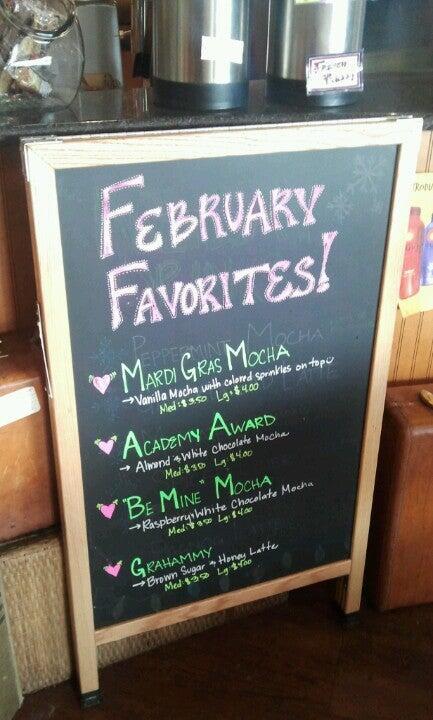 FEBRUARY
FAVORITES!
PEPPERMINT MOCHA
MARDI GRAS MOCHA
→Vanilla Mocha with colored sprinkles on top
Med: $3.50 Lg: $4.00
ACADEMY AWARD
→ Almond & White Chocolate Mocha
Med: $3.50 Lg: $4.00
"BE MINE" MOCHA
→Raspberry & White Chocolate Mocha
Med: $3.50 Lg: $4.00
GRAHAMMY
→ Brown Sugar & Honey Latte
Med: $3.50 Lg: $4.00